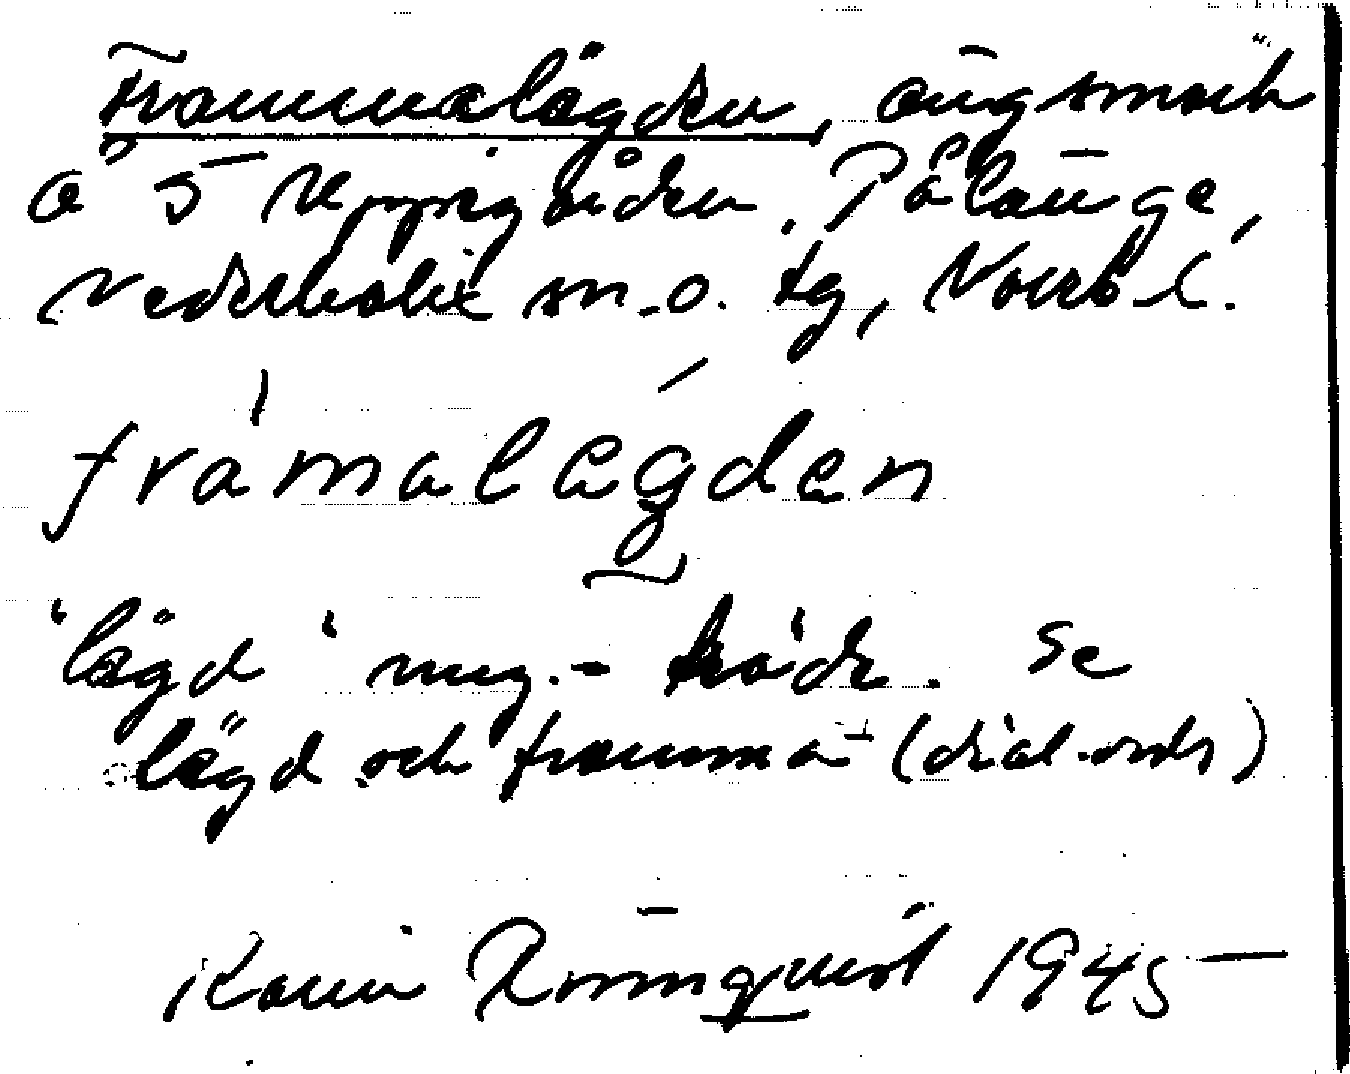 Frammalägden, ängsmark
å 5 Uppigården. Pålänge,
Nederkalix sn. o. tg, Norrb. l.
framalegden
"lägd" myr. - Se
lägd och framma (dial. ordr)
Karin Rönnquist 1945